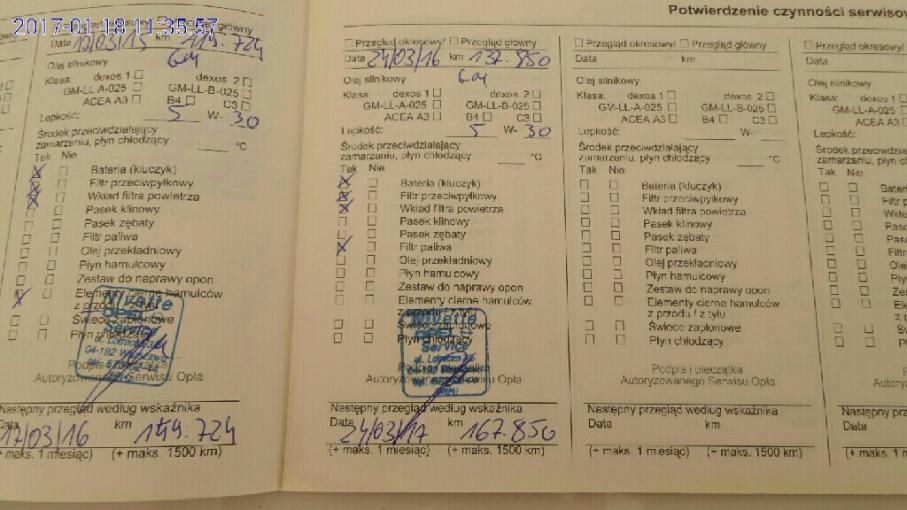 2017-01-18 11:35:57
Potwierdzenie czynności
km 119.724
Data 17/03/15
Olej silnikowy
Klasa: dexos 1 □ dexos 2 □
GM-LL-A-025 □ GM-LL-B-025 □
ACEA A3 □ B4 □ C3 □
Lepkość: 5 W- 30
Środek przeciwdziałający
zamarzaniu, płyn chłodzący °C
Tak Nie
Bateria (kluczyk)
Filtr przeciwpyłkowy
Wkład filtra powietrza
Pasek klinowy
Pasek zębaty
Filtr paliwa
Olej przekładniowy
Płyn hamulcowy
Zestaw do naprawy opon
Elementy cierne hamulców
z przodu / z tyłu
Świece zapłonowe
Płyn chłodzący
Nivette
OPEL
Service
04-192
Podpis i pieczątka
Autoryzowanego Serwisu Opla
Następny przegląd według wskaźnika
Data km
17/03/16 149.724
(+ maks. 1 miesiąc) (+ maks. 1500 km)
□ Przegląd okresowy/ □ Przegląd główny
Data 24/03/16 km 137.850
Olej silnikowy
Klasa: dexos 1 □ dexos 2 □
GM-LL-A-025 □ GM-LL-B-025 □
ACEA A3 □ B4 □ C3 □
Lepkość: 5 W- 30
Środek przeciwdziałający
zamarzaniu, płyn chłodzący °C
Tak Nie
Bateria (kluczyk)
Filtr przeciwpyłkowy
Wkład filtra powietrza
Pasek klinowy
Pasek zębaty
Filtr paliwa
Olej przekładniowy
Płyn hamulcowy
Zestaw do naprawy opon
Elementy cierne hamulców
z przodu / z tyłu
Świece zapłonowe
Płyn chłodzący
Nivette
OPEL
Service
Podpis i pieczątka
Autoryzowanego Serwisu Opla
Następny przegląd według wskaźnika
Data km
24/03/17 167.850
(+ maks. 1 miesiąc) (+ maks. 1500 km)
□ Przegląd okresowy/ □ Przegląd główny
Data km
Olej silnikowy
Klasa: dexos 1 □ dexos 2 □
GM-LL-A-025 □ GM-LL-B-025 □
ACEA A3 □ B4 □ C3 □
Lepkość: W-
Środek przeciwdziałający
zamarzaniu, płyn chłodzący °C
Tak Nie
Bateria (kluczyk)
Filtr przeciwpyłkowy
Wkład filtra powietrza
Pasek klinowy
Pasek zębaty
Filtr paliwa
Olej przekładniowy
Płyn hamulcowy
Zestaw do naprawy opon
Elementy cierne hamulców
z przodu / z tyłu
Świece zapłonowe
Płyn chłodzący
Podpis i pieczątka
Autoryzowanego Serwisu Opla
Następny przegląd według wskaźnika
Data km
(+ maks. 1 miesiąc) (+ maks. 1500 km)
□ Przegląd okresowy/
Data
Olej silnikowy
Klasa: dexos 1
GM-LL-A-025
ACEA A3
Lepkość:
Środek
zamarzaniu, płyn
Tak Nie
Następny przegląd
Data
(+ maks. 1 miesiąc)